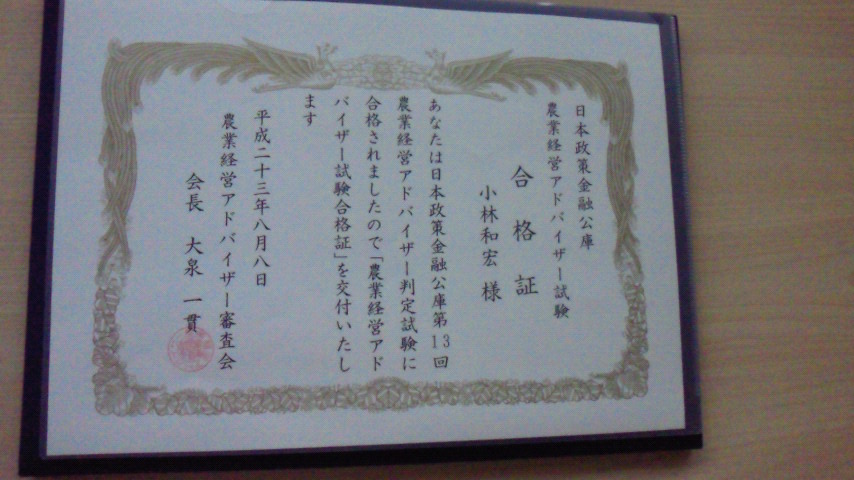 日本政策金融公庫
農業経営アドバイザー試験
合格証
小林和宏 様
あなたは日本政策金融公庫第13回
農業経営アドバイザー判定試験に
合格されましたので「農業経営アド
バイザー試験合格証」を交付いたし
ます
平成二十三年八月八日
農業経営アドバイザー審査会
会長 大泉 一貫